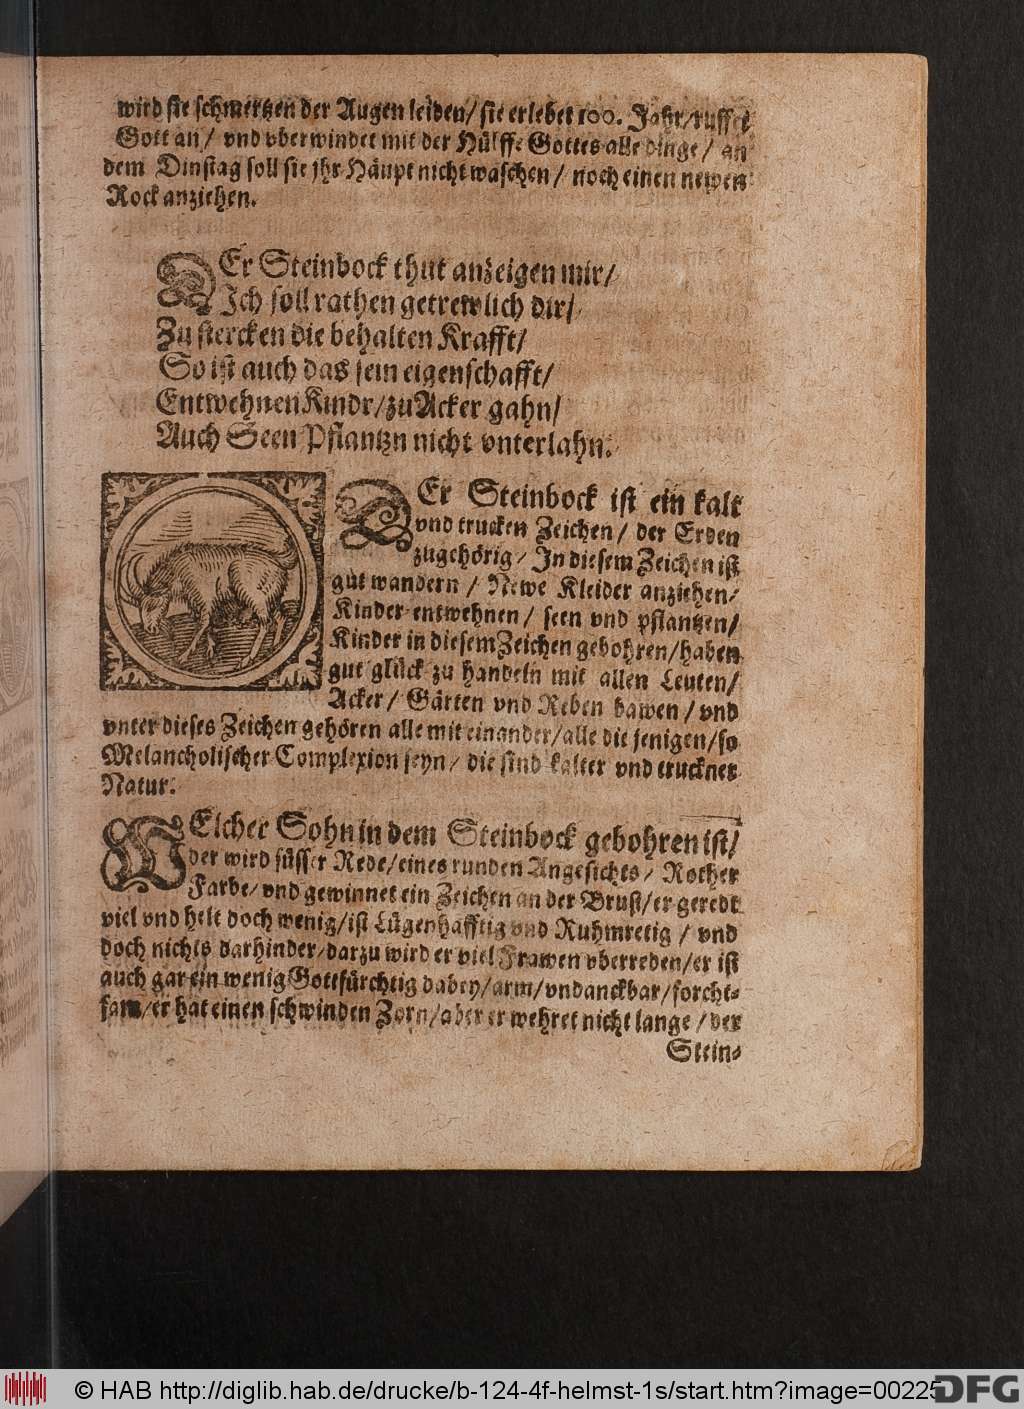 wird sie schmertzen der Augen leiden/ sie erlebet 100. Jahr/ruffet
Gott an/ vnd vberwindet mit der Hülffe Gottes alle dinge/ an
dem Dinstag soll sie jhr Häupt nicht waschen/ noch einen newen
Rock anziehen.
DEr Steinbock thut anzeigen mir/
Ich soll rathen getrewlich dir/
Zu stercken die behalten Krafft/
So ist auch das sein eigenschafft/
Entwehnen Kindr/zu Acker gahn/
Auch Seen Pflantzn nicht vnterlahn.
DEr Steinbock ist ein kalt
vnd trucken Zeichen/ der Erden
zugehörig/ In diesem Zeichen ist
gut wandern/ Newe Kleider anziehen/
Kinder entwehnen/ seen vnd pflantzen/
Kinder in diesem Zeichen gebohren/haben
gut glück zu handeln mit allen Leuten/
Acker/ Gärten vnd Reben bawen/ vnd
vnter dieses Zeichen gehören alle mit einander/alle die jenigen/so
Melancholischer Complexion seyn/ die sind kalter vnd truckner
Natur.
WElcher Sohn in dem Steinbock gebohren ist/
der wird süsser Rede/eines runden Angesichts/ Rother
Farbe/ vnd gewinnet ein Zeichen an der Brust/er geredt
viel vnd helt doch wenig/ist Lügenhafftig vnd Ruhmretig/ vnd
doch nichts darhinder/darzu wird er viel Frawen vberreden/er ist
auch gar ein wenig Gottfürchtig dabey/arm/vndanckbar/forcht-
sam/er hat einen schwinden Zorn/aber er wehret nicht lange/der
Stein-
© HAB http://diglib.hab.de/drucke/b-124-4f-helmst-1s/start.htm?image=00225
DFG